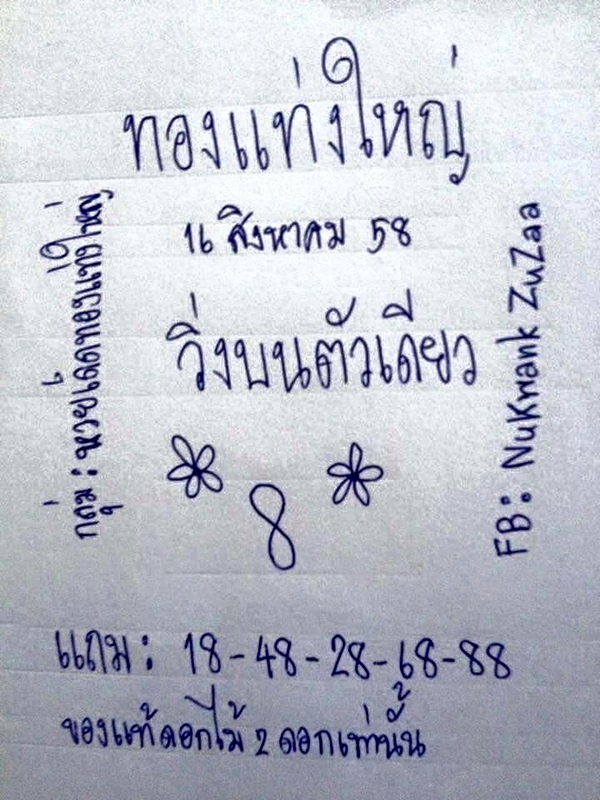 ทองแท่งใหญ่
16 สิงหาคม 58
วิ่งบนตัวเดียว
8
แถม: 18-48-28-68-88
ของแท้ดอกไม้ 2 ดอกเท่านั้น
กลุ่ม: หวยเด็ดทองแท่งใหญ่
FB: NuKwank ZuZaa